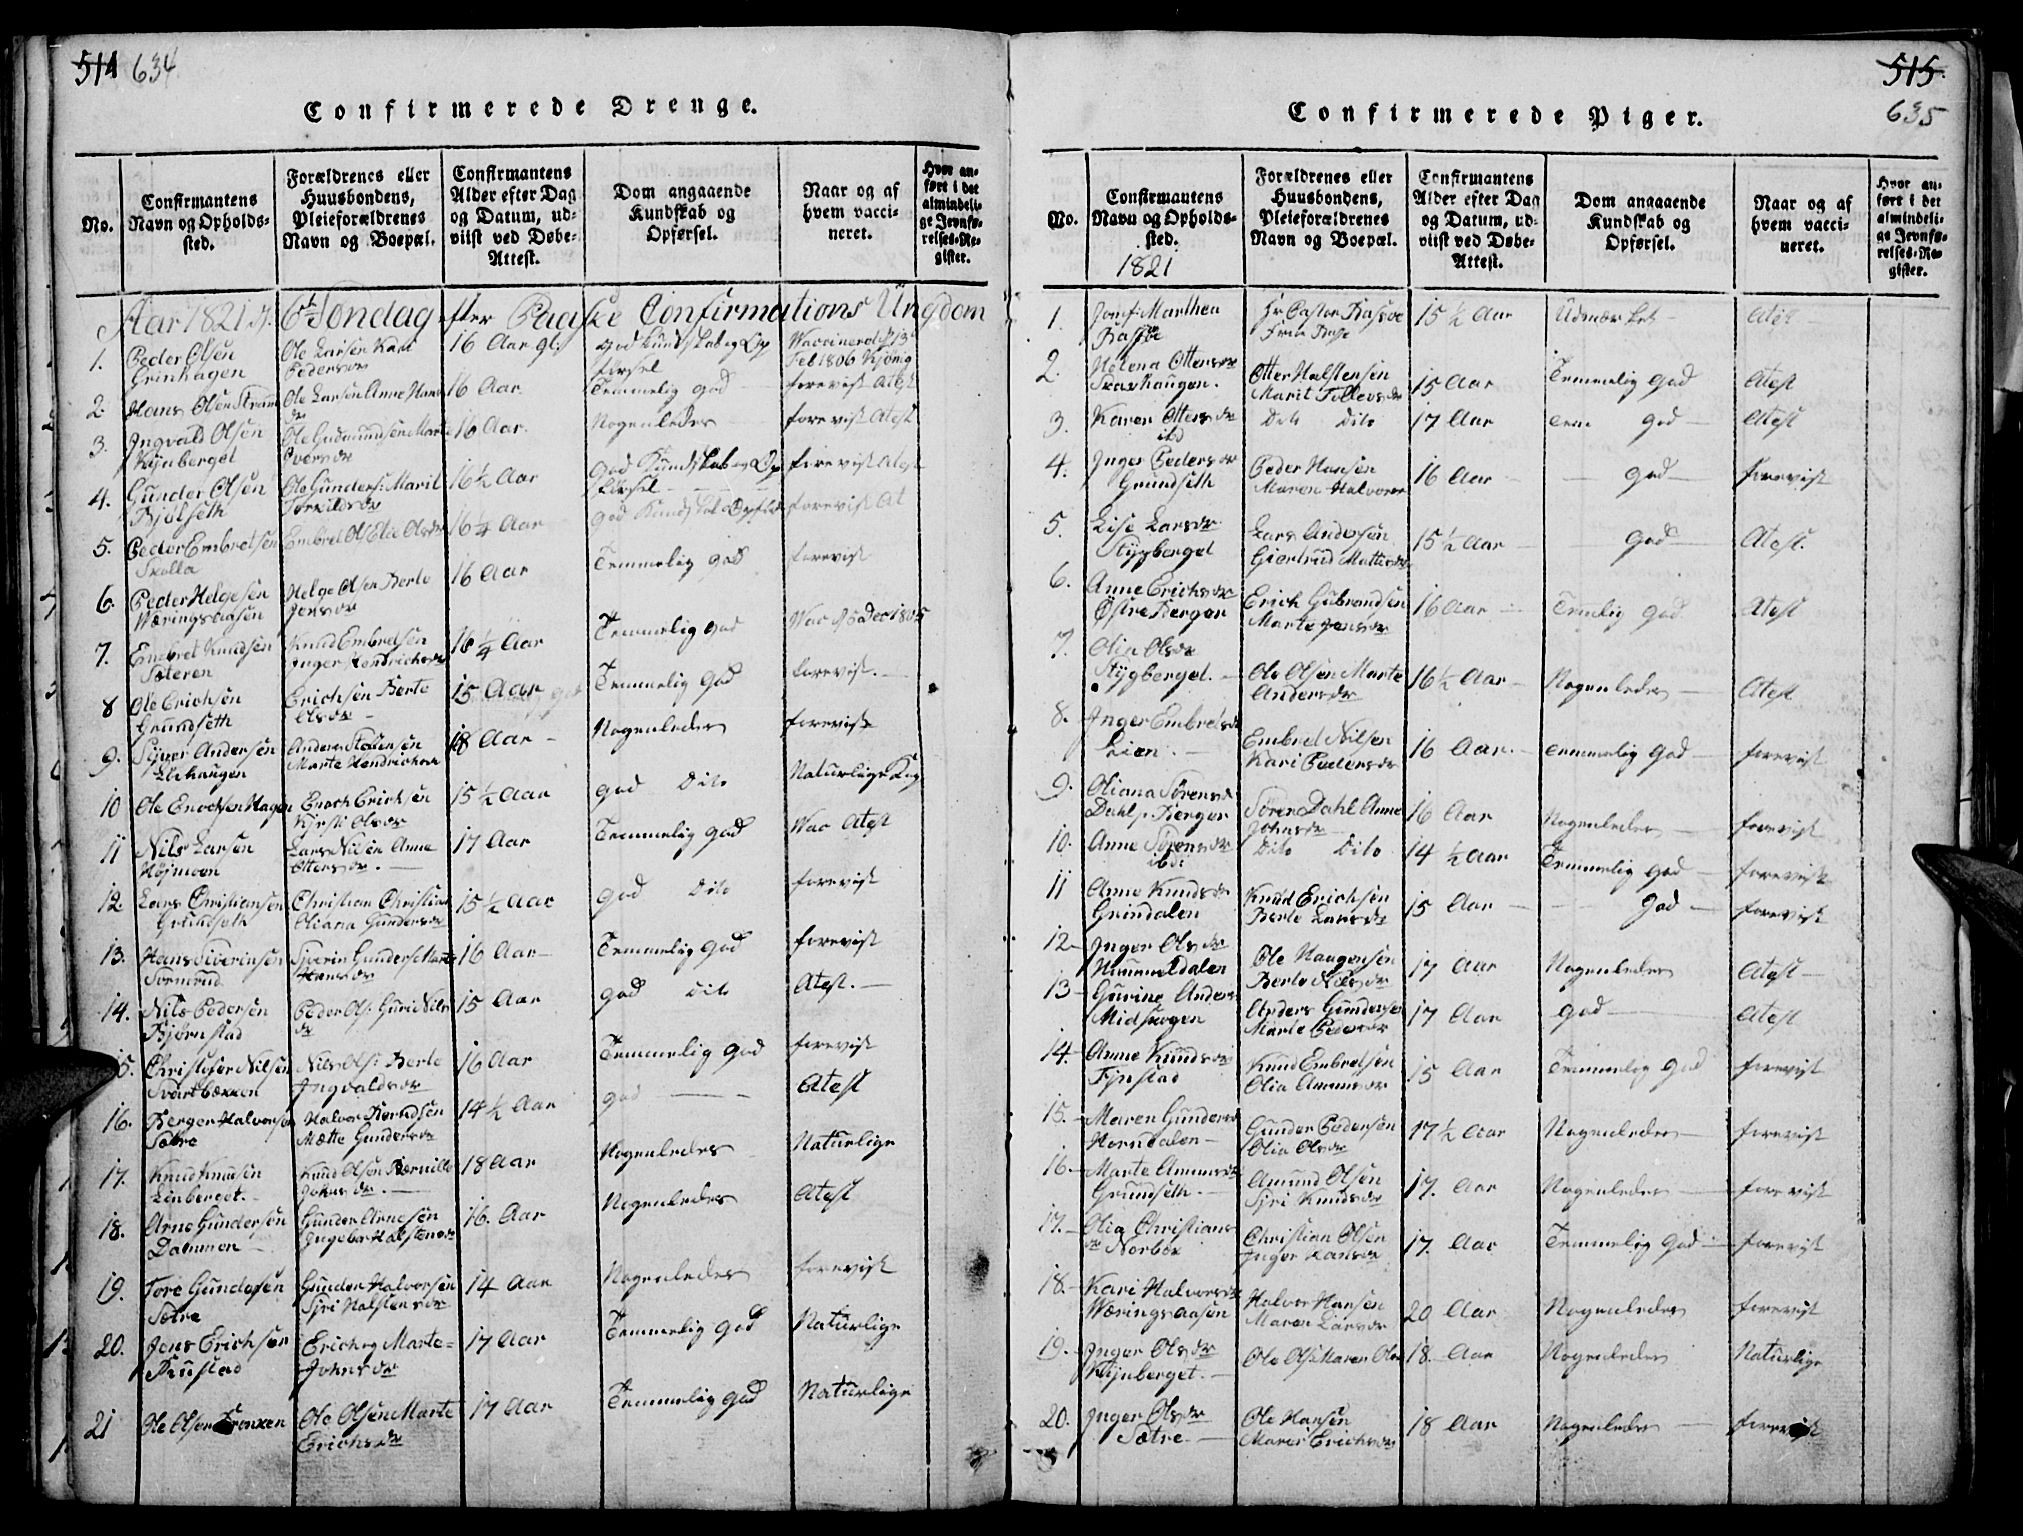 514 634
Confirmerede Drenge.
No.
Confirmantens
Navn og Opholds-
sted.
Forældrenes eller
Huusbondens,
Pleieforældrenes
Navn og Boepæl.
Confirmantens
Alder efter Dag
og Datum, ud-
viist ved Døbe-
Attest.
Dom angaaende
Kundskab og
Opførsel.
Naar og af
hvem vacci-
neret.
Hvor an-
ført i det
almindeli-
ge Jevnfø-
relses-Re-
gister.
Aar 1821 d. 6te Søndag efter Paaske Confirmations Ungdom
1. Peder Olsen Ole Larsen Kari 16 Aar gl. god Kundskab og Op Vaccineret d 13
Grinhagen Pedersdr førsel Feb 1806
2. Hans Olsen Ole Larsen Anne Hans 16 Aar Temmelig god forevist Atest
dr
3. Ingvald Olsen Ole Gudmundsen Marte 16 Aar. Nogenledes forevist Atest
Kynberget Iversdr
4. Gunder Olsen Ole Gunders: Marit 16½ Aar God Kundskab og Op forevist Atest
Bjølseth førsel
5. Peder Embretsen Embret Ols Elie Olsdr 16¼ Aar god Kundskab forevist At
Skolla
6. Peder Helgesen Helge Olsen Berte 16 Aar Temmelig god forevist
Wæringsaasen Jensdr
7. Embret Knudsen Knud Embretsen 16¼ Aar Temmelig god Vac
Sæteren Inger Hendrichsdr
8 Ole Erichsen Erichsen Berte 15 Aar Temmelig God forevist.
Grundseth Olsdr
9. Syver Andersen Anders 18 Aar Nogenledes forevist
Marte Hendrichsdr
10 Ole Enochsen Hagen Enoch Erichsen 15½ Aar god Dito Naturlige
Kjersti Olsdr
11 Nils Larsen Lars Nilsen Anne 17 Aar Temmelig god Vac Atest
Højmoen Ottersdr.
12. Lars Christiansen Christian Christian 15½ Aar god Dito forevist
Grundseth Oliana Gundersdr
13. Hans Siverinsen Syverin Gunders Marte 16 Aar Temmelig god forevist
Sormrud Hansdr
14. Nils Pedersen Peder Ols: Guri Nils 15 Aar god Dito Atest.
Bjørnstad dr
15. Christofer Nilsen Nils Ols: Berte 16 Aar Temmelig god forevist
Svartbækken Ingvaldsdr
16. Berger Halvorsen Halvor 14½ Aar god Atest
Sætre Mette Gundersdr
17. Knud Knudsen Knud Olsen Pernille 18 Aar Nogenledes Naturlige
Linberget. Johnsdr.
18. Arne Gundersen Gunder Arnesen 16 Aar Nogenledes Atest
Dammen Ingebor Halstensdr
19. Tore Gundersen Gunder Halvorsen 14 Aar Nogenledes forevist
Sætre Sjri Halstensdr
20. Jens Erichsen Erich og Marte 17 Aar Temmelig god Naturlige
Johnsdr
21 Ole Olsen Ole Olsen Marte 17 Aar Temmelig God Naturlige
Erichsdr
515.
635
Confirmerede Piger.
No.
Confirmantens
Navn og Opholds-
sted.
1821
Forældrenes eller
Huusbondens,
Pleieforældrenes
Navn og Boepæl.
Confirmantens
Alder efter Dag
og Datum, ud-
viist ved Døbe-
Attest.
Dom angaaende
Kundskab og
Opførsel.
Naar og af
hvem vacci-
neret.
Hvor an-
ført i det
almindeli-
ge Jevnfø-
relses-Re-
gister.
1. Jomf. Marthea Hr Pastor 15½ Aar Udmærket Atest
2. Helena Ottersdr Otter Halstensen 15 Aar Temmelig god Atest
Skarhaugen. Marit
3. Karen Ottersdr Dito Dito 17 Aar Tem god Atest
ibd
4. Inger Pedersdr Peder Hansen 16 Aar god forevist
Grundseth Maren Halvorsdr
5. Lise Larsdr Lars Andersen 15½ Aar god Atest.
Stygberget Giertrud
6. Anne Erichsdr Erich Gubrandsen 16 Aar Temlig god Atest
Østre Berger Marte Jensdr
7. Olia Olsdr
Stygberget. Ole Olsen Marte 16½ Aar Nogenledes Atest
Andersdr
8. Inger Embretsdr
Lien. Embret Nilsen 16 Aar. Temmelig god forevist
Kari Pedersdr
9. Oliana Sørensdr Søren Dahl Anne 16 Aar Nogenledes forevist
Dahl p. Berger Johnsdr
10. Anne Sørensdr Dito Dito 14½ Aar Temmelig god forevist
ibdi
11 Anne Knudsdr Knud Erichsen 15 Aar God forevist
Grindalen Berte Larsdr
12 Inger Olsdr Ole Haagensen 17 Aar Nogenledes Atest
Hummeldalen Berte Nilsdr
13 Gurine Anders Anders Gundersen 17 Aar God Atest
Midskogen Marte Pedersdr
14. Anne Knudsdr Knud Embretsen 15 Aar Temmelig god forevist
Fynstad Olia Amunsdr
15. Maren Gundersdr Gunder Pedersen 17½ Aar Nogenledes forevist
Horndalen Olia Olsdr
16. Marte Amunsdr Amund Olsen 17. Aar Nogenledes forevist
Grundseth. Sjri Knudsdr
17. Olia Christians Christian Olsen 17. Aar Temmelig God forevist
dr Norbøe Inger Larsdr
18. Kari Halvorsdr Halvor Hansen 20 Aar Nogenledes forevist
Wæringsaasen Maren Larsdr
19. Inger Olsdr Ole Ols: Maren Ols 18 Aar Nogenledes Naturlige
Kynberget.
20. Inger Olsdr Ole Hansen 18 Aar Nogenledes forevist
Sætre Erichsdr